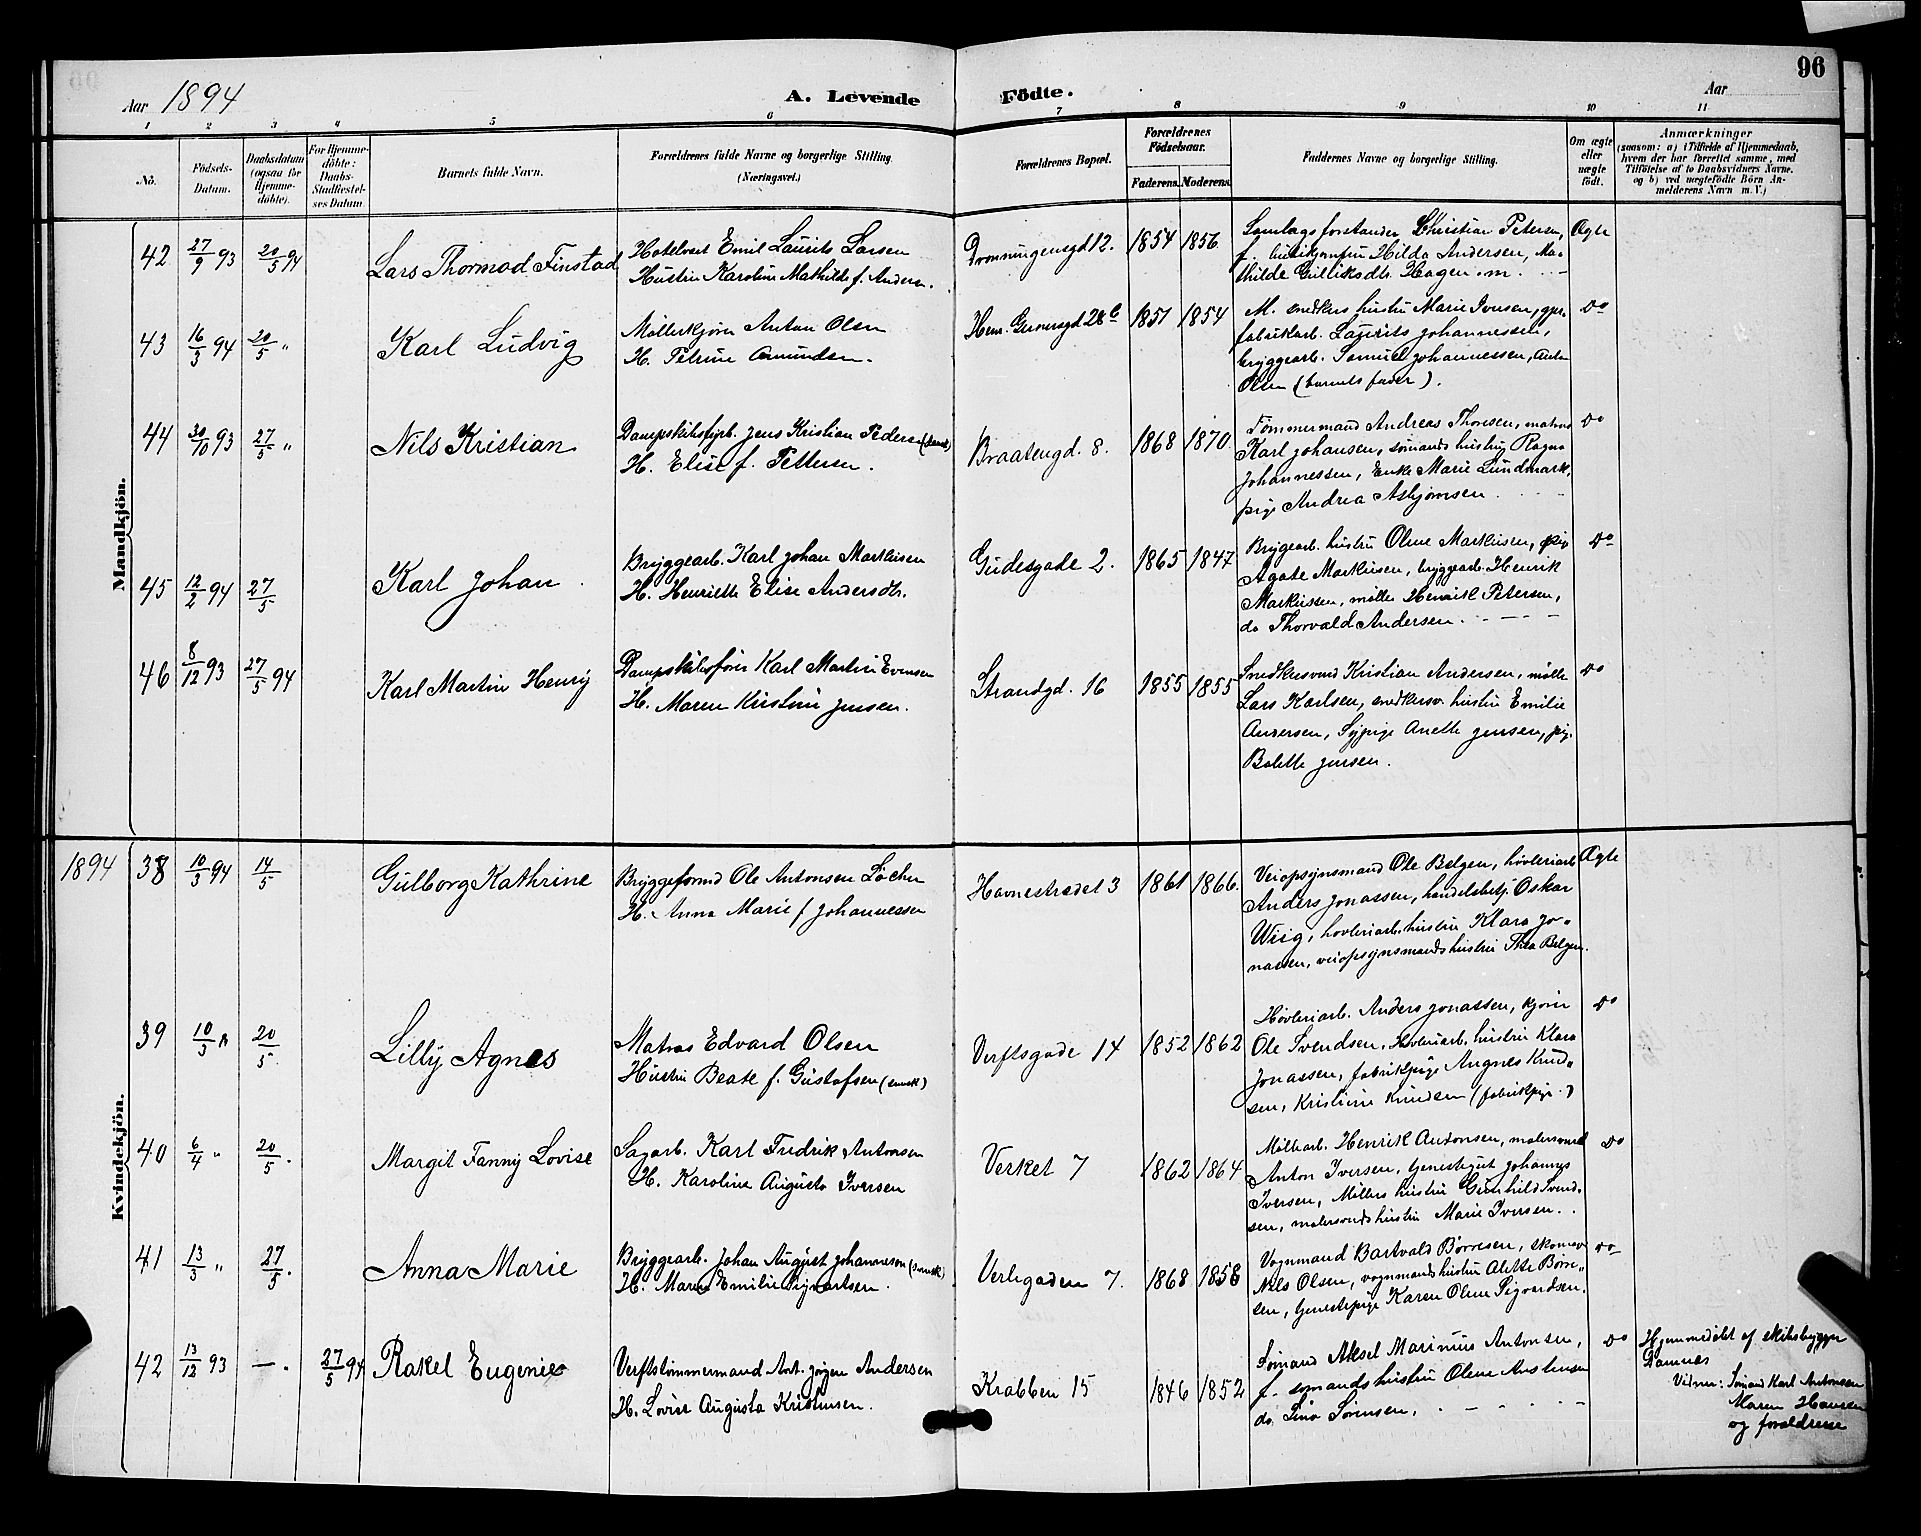 96
Aar 1894
A. Levende
Fødte.
Aar
1 2 3 4 5 6 7 8 9 10 11
No.
Födsels-
Datum.
Daabsdatum
(ogsaa for
Hjemme-
döbte).
For Hjemme-
döbte:
Daabs-
Stadfæstel-
ses Datum
Barnets fulde Navn.
Forældrenes fulde Navne og borgerlige Stilling.
(Næringsvei.)
Forældrenes Bopæl.
Forældrenes
Födselsaar.
Faderens. Moderens.
Faddernes Navne og borgerlig Stilling.
Om ægte
eller
uægte
født.
Anmærkninger
(saasom: a) i Tilfælde af Hjemmedaab,
hvem der har forrettet samme, med
Tilföielse af to Daabsvidners Navne.
og b) ved uægtefödte Börn An-
melderens Navn m. V.)
Mandkjön.
42 27/9 93 20/5 94 Lars Thormod Finstad
Hotelvert Emil Laurits Larsen
Hustru Karoline Mathilde f. Anders.
Dronningensgd 12. 1854 1856
Samlagsforstander Christian Petersen,
f. Hilda Andersen, Ma-
thilde Gulliksdtr. Hagen
Ægte
43 16/3 94 20/5 " Karl Ludvig
Møllerkjører Anton Olsen
H. Petrine Amundsen.
Hen. Gernersgd 28b 1851 1854
M. snedkers hustru Marie Iversen,
fabrikarb. Laurits Johannessen,
bryggearb. Samuel Johannessen, Anton
Olsen (barnets fader).
Do
44 30/10 93 27/5 " Nils Kristian
Dampskibsfyrb. Jens Kristian Pedersen (dansk)
H. Elise f. Pettersen.
Braatengd. 8. 1868 1870
Tømmermand Andreas Thoresen, matros
Karl Johansen, sømands hustru Ragna
Johannessen, Enke Marie Lundmark,
pige Andrea Asbjørnsen.
Do
45 12/2 94 27/5 Karl Johan
Bryggearb. Karl Johan Markusen
H. Henriette Elise Andersdtr.
Gudesgade 2. 1865 1847
Bryggearb. hustru Oline Markusen, pige
Agate Markusen, bryggearb. Henrik
Markussen, møller Henrik Petersen,
do Thorvald Andersen.
Do
46 8/12 93 27/5 94 Karl Martin Henry
Dampskibsfører Karl Martin Evensen
H. Maren Kristine Jensen.
Strandgd. 16 1855 1855
Snedkersvend Kristian Andersen, møller
Lars Karlsen, snedkersv. hustru Emilie
Andersen, Sypige Anette Jensen, pige
Bolette Jensen.
Do
Kvindekjön.
1894 38 10/3 94 14/5 Gulborg Kathrine
Bryggeformd Ole Antonsen Løcher
H. Anna Marie f Johannessen
Havnestrædet 3 1861 1866.
Veiopsynsmand Ole Belgen, høvleriarb.
Anders Jonassen, handelsbetj. Oskar
Wiig, høvleriarb. hustru Klara Jo-
nassen, veiopsynsmands hustru Thea Belgen.
Ægte
39 10/3 20/5 Lilly Agnes
Matros Edvard Olsen
Hustru Beate f. Gustafsen (svensk)
Verftsgade 14 1852 1862
Høvleriarb. Anders Jonassen, kjører
Ole Svendsen, Høvleriarb. hustru Klara
Jonassen, fabrikpige Angnes Knud-
sen, Kristine Knudsen (fabrikpige.)
Do
40 6/4 " 20/5. Margit Fanny Lovise
Sagarb. Karl Fredrik Antonsen
H. Karoline Augusta Iversen
Verket 7 1862 1864
Møllearb. Henrik Antonsen, malersvend
Anton Iversen, tjenestegut Johannes
Iversen, Møllers hustru Gunhild Svend-
sen, malersvends hustru Marie Iversen.
Do
41 13/3 " 27/5. Anna Marie
Bryggearb. Johan August Johannesson (svensk)
H. Maren Emilie Sigvartsen.
Verlegaden 7. 1868 1858
Vognmand Bartvald Børresen, skomager
Nils Olsen, vognmands hustru Alette Børre-
sen, tjenestepige Karen Oline Sigvardsen.
Do
42 13/12 93 —. 27/5 94 Rakel Eugenie
Verftstømmermand Ant. Jørgen Andersen
H. Lovise Augusta Kristensen.
Krabben 15 1846 1852
Sømand Aksel Marinius Antonsen,
f. sømands hustru Oline Austensen
do. Tina Sørensen.
Do
Hjemmedøbt af skibsbygger
Ramnes
Vidner: Sømand Karl Antonsen
Maren Hansen
og forældrene